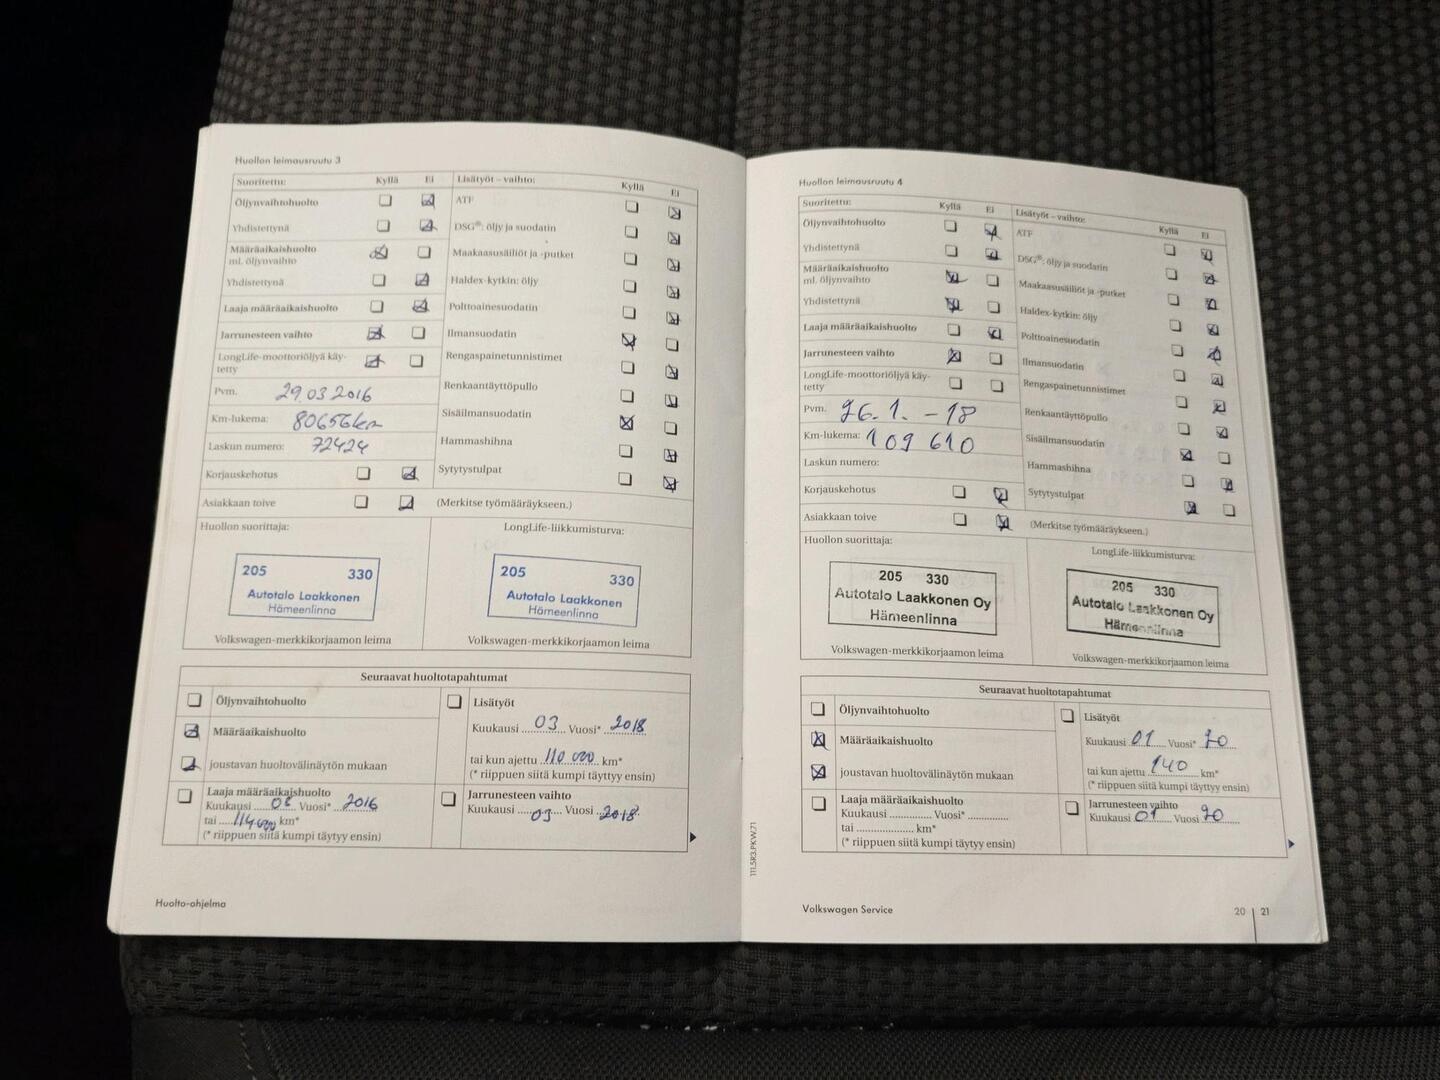 Huollon leimausruutu 3
Suoritettu: Kyllä Ei
Öljynvaihtohuolto
Yhdistettynä
Määräaikaishuolto
ml. öljynvaihto
Yhdistettynä
Laaja määräaikaishuolto
Jarrunesteen vaihto
LongLife-moottoriöljyä käy-
tetty
Pvm. 29.03.2016
Km-lukema: 80656km
Laskun numero: 72424
Korjauskehotus
Asiakkaan toive
Lisätyöt – vaihto: Kyllä Ei
ATF
DSG®: öljy ja suodatin
Maakaasusäiliöt ja -putket
Haldex-kytkin: öljy
Polttoainesuodatin
Ilmansuodatin
Rengaspainetunnistimet
Renkaantäyttöpullo
Sisäilmansuodatin
Hammashihna
Sytytystulpat
(Merkitse työmääräykseen.)
Huollon suorittaja:
205 330
Autotalo Laakkonen
Hämeenlinna
Volkswagen-merkkikorjaamon leima
LongLife-liikkumisturva:
205 330
Autotalo Laakkonen
Hämeenlinna
Volkswagen-merkkikorjaamon leima
Seuraavat huoltotapahtumat
Öljynvaihtohuolto
Määräaikaishuolto
joustavan huoltovälinäytön mukaan
Laaja määräaikaishuolto
Kuukausi 08 Vuosi* 2016
tai 114 000 km*
(* riippuen siitä kumpi täytyy ensin)
Lisätyöt
Kuukausi 03 Vuosi* 2018
tai kun ajettu 110 000 km*
(* riippuen siitä kumpi täyttyy ensin)
Jarrunesteen vaihto
Kuukausi 03 Vuosi 2018.
Huolto-ohjelma
Huollon leimausruutu 4
Suoritettu: Kyllä Ei
Öljynvaihtohuolto
Yhdistettynä
Määräaikaishuolto
ml. öljynvaihto
Yhdistettynä
Laaja määräaikaishuolto
Jarrunesteen vaihto
LongLife-moottoriöljyä käy-
tetty
Pvm. 26.1.-18
Km-lukema: 109 610
Laskun numero:
Korjauskehotus
Asiakkaan toive
Lisätyöt – vaihto: Kyllä Ei
ATF
DSG®: öljy ja suodatin
Maakaasusäiliöt ja -putket
Haldex-kytkin: öljy
Polttoainesuodatin
Ilmansuodatin
Rengaspainetunnistimet
Renkaantäyttöpullo
Sisäilmansuodatin
Hammashihna
Sytytystulpat
(Merkitse työmääräykseen.)
Huollon suorittaja:
205 330
Autotalo Laakkonen Oy
Hämeenlinna
Volkswagen-merkkikorjaamon leima
LongLife-liikkumisturva:
205 330
Autotalo Laakkonen Oy
Hämeenlinna
Volkswagen-merkkikorjaamon leima
Seuraavat huoltotapahtumat
Öljynvaihtohuolto
Määräaikaishuolto
joustavan huoltovälinäytön mukaan
Laaja määräaikaishuolto
Kuukausi Vuosi*
tai km*
(* riippuen siitä kumpi täytyy ensin)
Lisätyöt
Kuukausi 01 Vuosi* 20
tai kun ajettu 140 km*
(* riippuen siitä kumpi täyttyy ensin)
Jarrunesteen vaihto
Kuukausi 01 Vuosi 20
111.5R3.PKW.71
Volkswagen Service
20 21